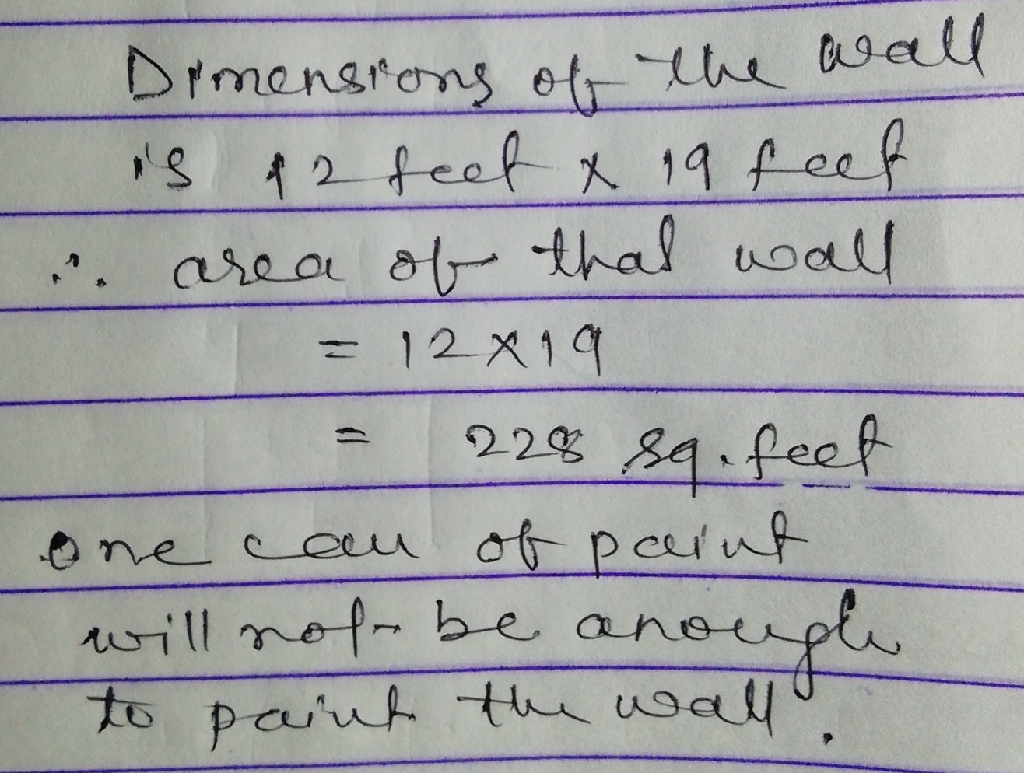 Dimensions of the wall
is 12 feet x 19 feet
∴ area of that wall
= 12 x 19
= 228 sq. feet
one can of paint
will not be anough
to paint the wall.